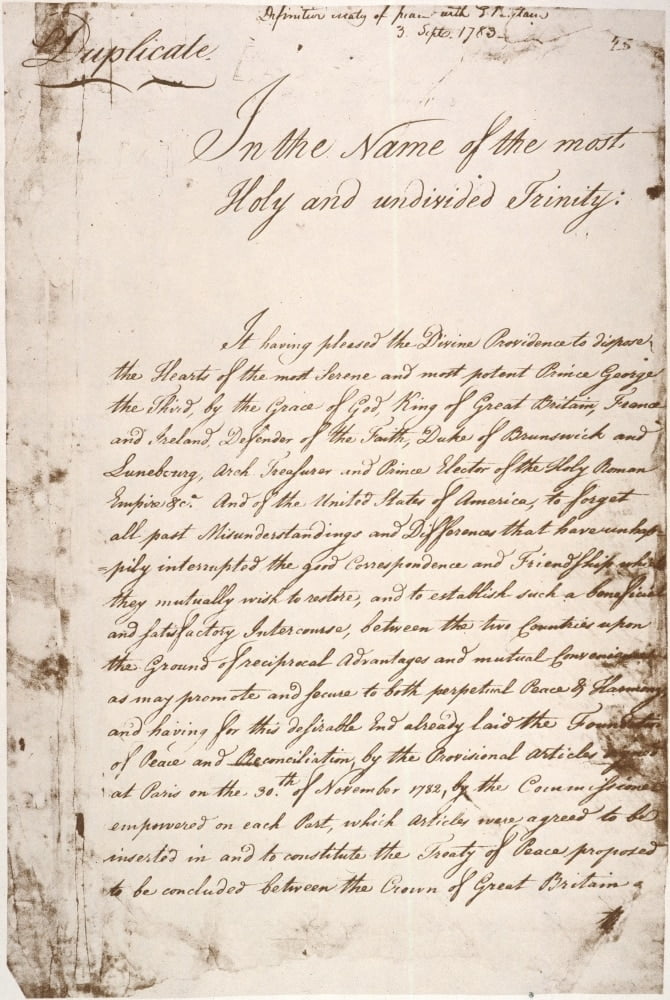 Definitive treaty of peace with G. Britain
3. Septr. 1783
Duplicate.
In the Name of the most
Holy and undivided Trinity:
It having pleased the Divine Providence to dispose
the Hearts of the most Serene and most potent Prince George
the Third, by the Grace of God, King of Great Britain, France
and Ireland, Defender of the Faith, Duke of Brunswick and
Lunebourg, Arch Treasurer and Prince Elector of the Holy Roman
Empire &c.a And of the United States of America, to forget
all past Misunderstandings and Differences that have unhap
=pily interrupted the good Correspondence and Friendship which
they mutually wish to restore; and to establish such a beneficial
and satisfactory Intercourse, between the two Countries upon
the Ground of reciprocal Advantages and mutual Convenience
as may promote and secure to both perpetual Peace & Harmony
and having for this desirable End already laid the Foundation
of Peace and Reconciliation, by the Provisional Articles signed
at Paris on the 30.th of November 1782, by the Commissioners
empowered on each Part, which Articles were agreed to be
inserted in and to constitute the Treaty of Peace proposed
to be concluded between the Crown of Great Britain